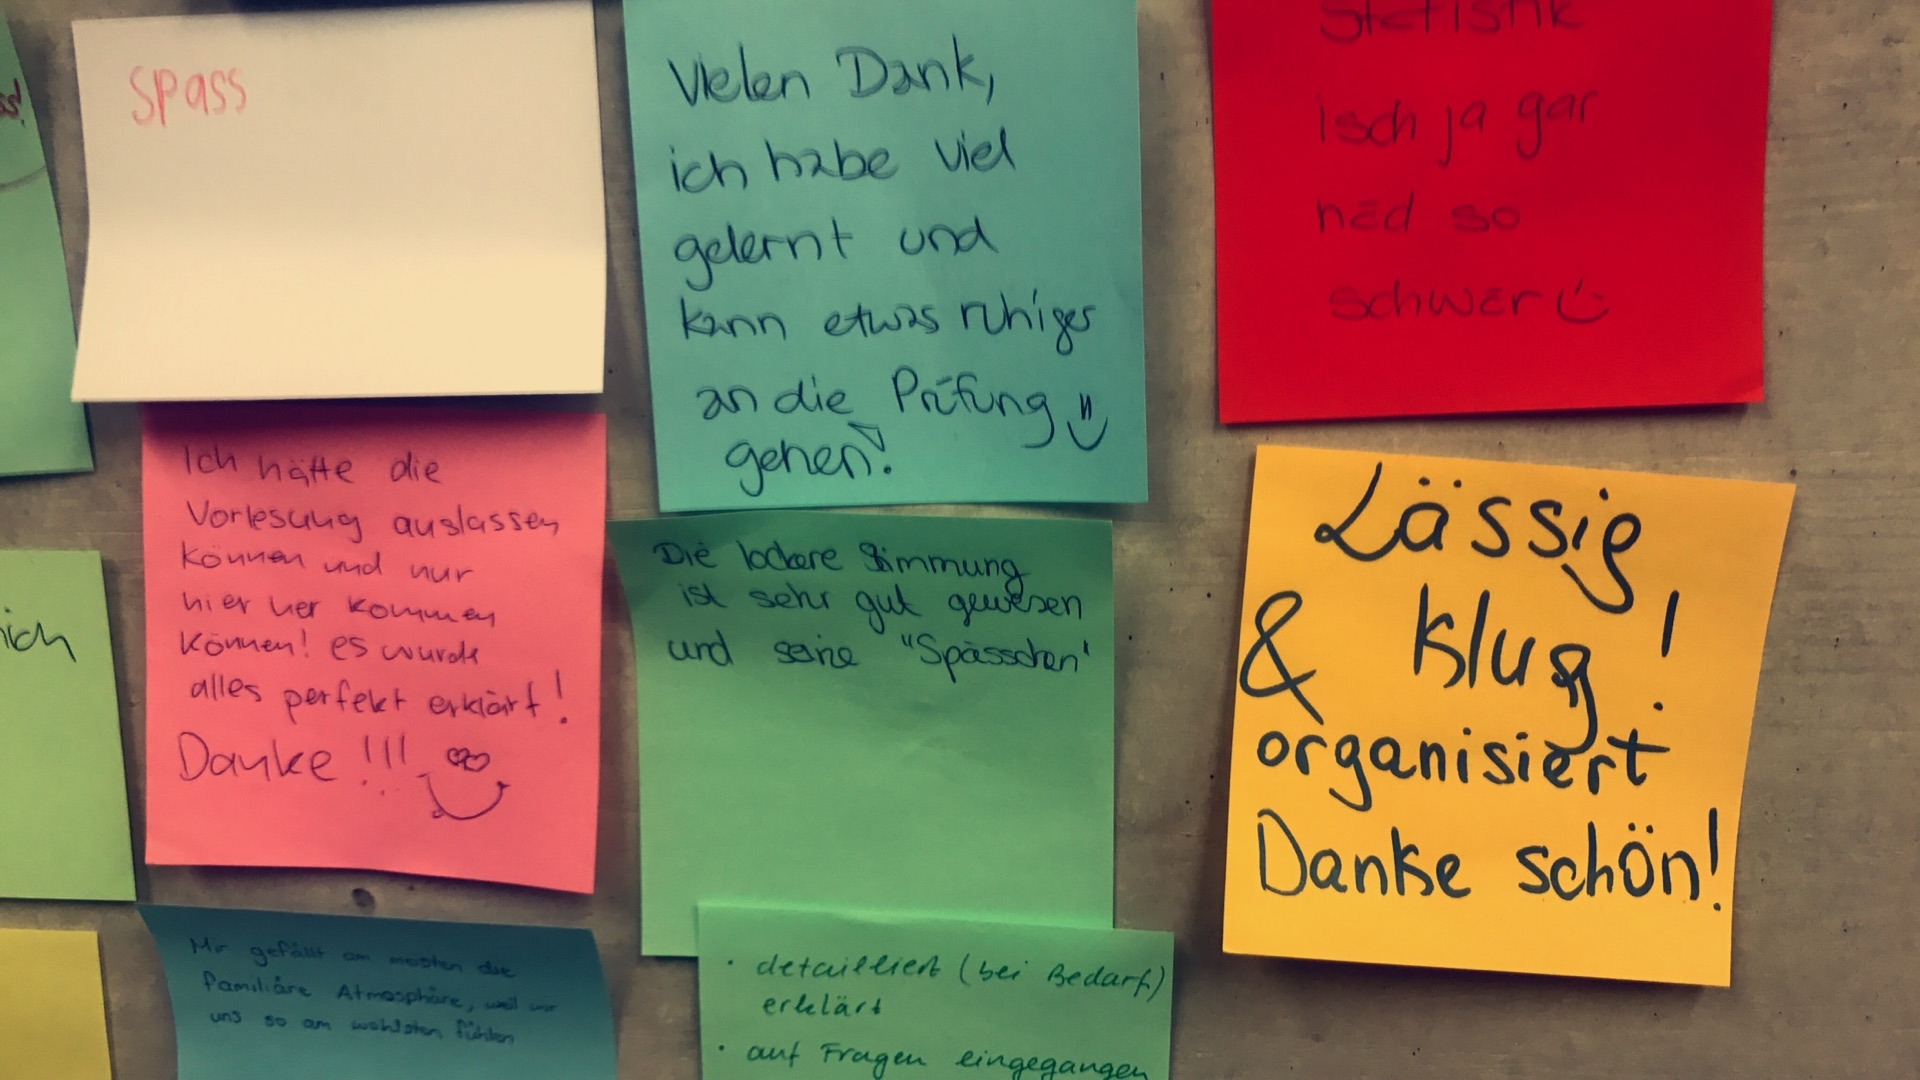 spass
Vielen Dank,
ich habe viel
gelernt und
kann etwas ruhiger
an die Prüfung
gehen!
Statistik
isch ja gar
ned so
schwer
Ich hätte die
Vorlesung auslassen
können und nur
hier her kommen
können! es wurde
alles perfekt erklärt!
Danke!!!
Die lockere Stimmung
ist sehr gut gewesen
und seine "Spässchen"
Lässig
& klug!
organisiert
Danke schön!
ich
Mir gefällt am meisten die
Familiäre Atmosphäre, weil wir
uns so am wohlsten fühlen
• detailliert (bei Bedarf)
erklärt
• auf Fragen eingegangen